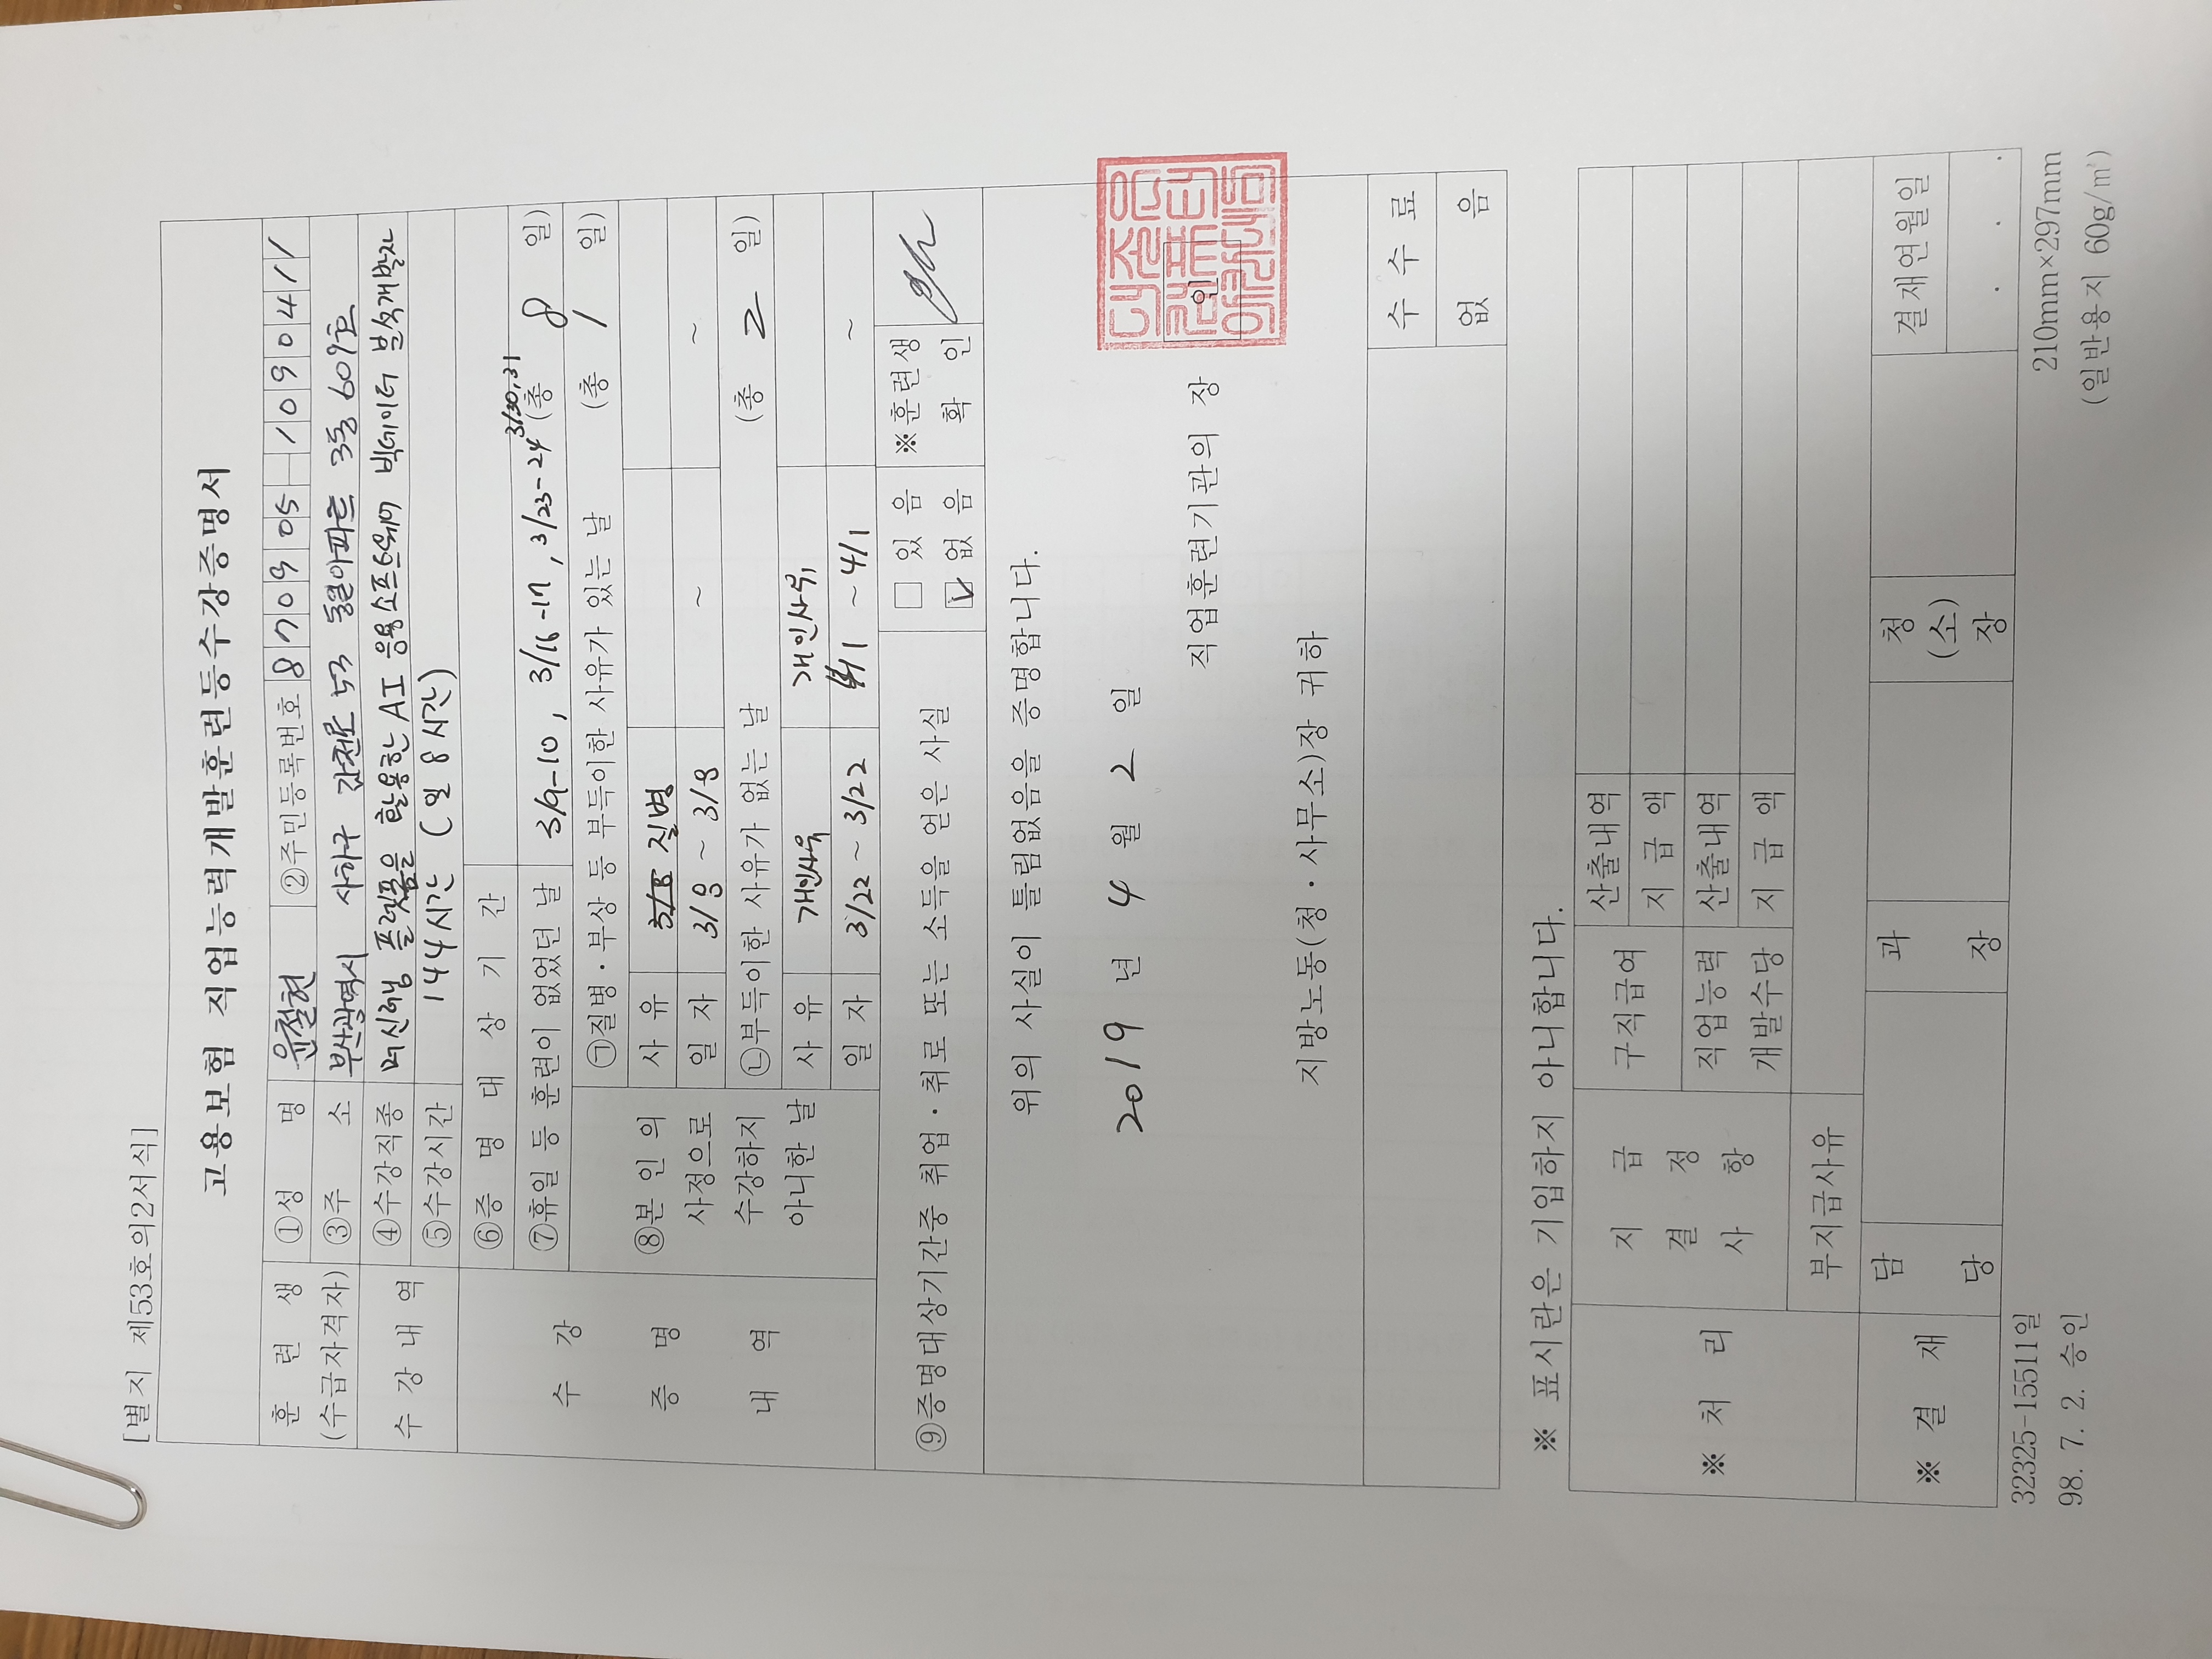 [별지 제53호의2서식]
고용보험 직업능력개발훈련등수강증명서
훈 련 생 ①성 명 윤철현 ②주민등록번호 870905-1090411
(수급자격자) ③주 소 부산광역시 사하구 감천로 53 동일아파트 3동 609호
수 강 내 역 ④수강직종 머신러닝 플렛폼을 활용한 AI 응용소프트웨어 빅데이터 분석개발자
⑤수강시간 144시간 (일 8시간)
수 강 증 명 내 역
⑥증 명 대 상 기 간
⑦휴일 등 훈련이 없었던 날 3/9-10, 3/16-17, 3/23-24 3/30,31 (총 8 일)
⑧본 인 의 사정으로 수강하지 아니한 날
㉠질병·부상 등 부득이한 사유가 있는 날 (총 1 일)
사 유 3/8 질병
일 자 3/8 ~ 3/8 ~ ~
㉡부득이한 사유가 없는 날 (총 2 일)
사 유 개인사유 개인사유
일 자 3/22 ~ 3/22 4/1 ~ 4/1 ~
⑨증명대상기간중 취업·취로 또는 소득을 얻은 사실 □ 있 음 ☑ 없 음 ※훈련생 확 인
위의 사실이 틀림없음을 증명합니다.
2019 년 4 월 2 일
직업훈련기관의 장 인
더조은
컴퓨터
아카데미
지방노동(청·사무소)장 귀하
수 수 료
없 음
※ 표시란은 기입하지 아니합니다.
※ 처 리
지 급 결 정 사 항
구직급여 산출내역
지 급 액
직업능력 개발수당 산출내역
지 급 액
부지급사유
※ 결 재 담 당 과 장 청 (소) 장 결재연월일
. . .
32325-15511일
98. 7. 2. 승인
210mm×297mm
(일반용지 60g/㎡)